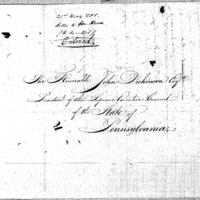 21st May 1785
Letter to
Entered
The Honorable John Dickinson Esqr
President of the Supreme Executive Council
of the State of
Pennsylvania